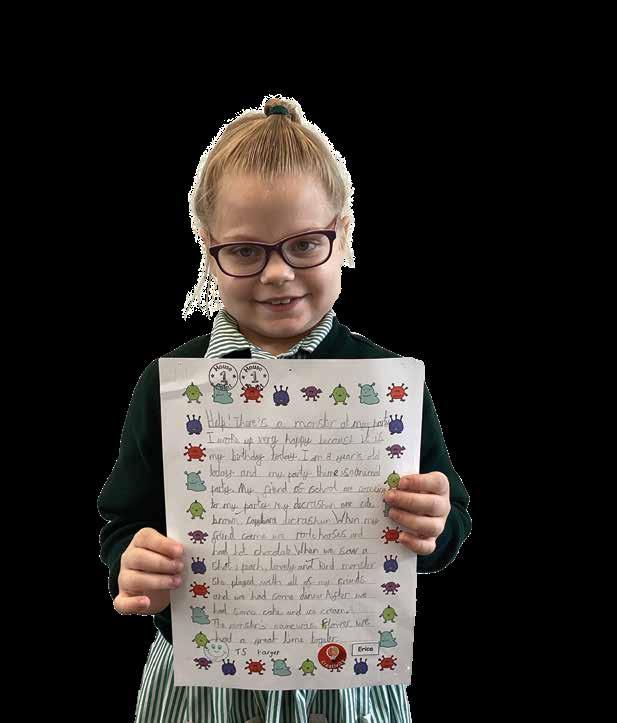 House 1 Point
House 1 Point
Help! There's a monster at my party
I woke up very happy because it is
my birthday today. I am 8 year's old
today and my party theme is animal
party. My friend's at school are
to my party. My are cute
brown, When my
friend came we rode horses and
had hot chocolate. When we saw a
She's a pach, lovely and kind monster
she played with all of my friends
and we had some dinner. After we
had some cake and ice cream.
The monster's name was Flower. We
had a great time
T5 target
Creativity
Erica